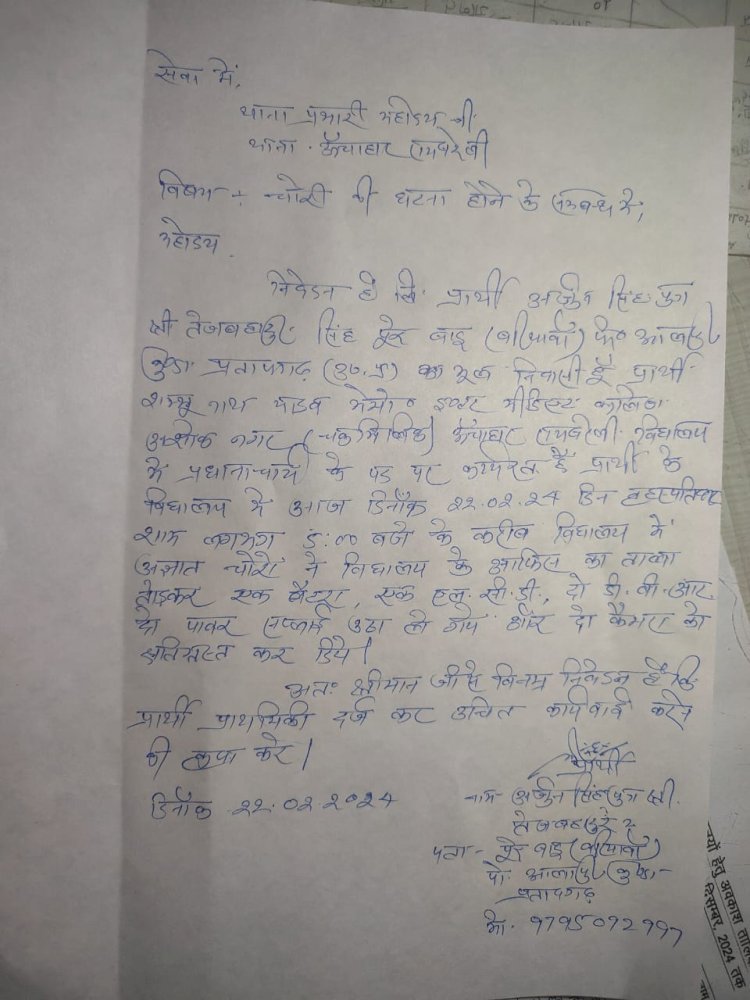 सेवा में,
थाना प्रभारी महोदय जी
थाना - ऊँचाहार रायबरेली
विषय :- चोरी की घटना होने के सम्बन्ध में,
महोदय
निवेदन है कि प्रार्थी अर्जुन सिंह पुत्र
श्री तेजबहादुर सिंह पूरे बाबू पो० आलापुर
प्रतापगढ़ (उ०प्र०) का मूल निवासी है प्रार्थी
शम्भू नाथ यादव मेमो० इण्टर मीडिएट कालेज
अशोक नगर ऊंचाहार रायबरेली विद्यालय
मे प्रधानाचार्य के पद पर कार्यरत है प्रार्थी के
विद्यालय मे आज दिनाँक 22.02.24 दिन बृहस्पतिवार
शाम लगभग बजे के करीब विद्यालय में
अज्ञात चोरो ने विद्यालय के आफिस का ताला
तोड़कर एक बैटरा, एक एल.सी.डी., दो डी.वी.आर.
दो पावर सप्लाई उठा ले गये और दो कैमरा को
क्षतिग्रस्त कर दिये।
अतः श्रीमान जी से विनम्र निवेदन है कि
प्रार्थी प्राथमिकी दर्ज कर उचित कार्यवाई करने
की कृपा करे।
प्रार्थी
दिनाँक 22.02.2024
नाम- अर्जुन सिंह पुत्र श्री
तेजबहादुर
पता- पूरे बाबू
पो. आलापुर
प्रतापगढ़
मो. 9795072997
हेतु अवकाश
दिसम्बर, 2024 तक